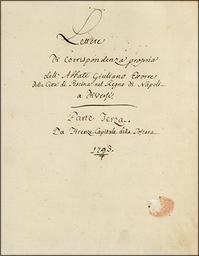 Lettere
Di Corrispondenza propria
dell' Abbate Giuliano
della Città di Pescina nel Regno di Napoli
a Diversi.
Parte Terza.
Da Firenze Capitale della Toscana
1793